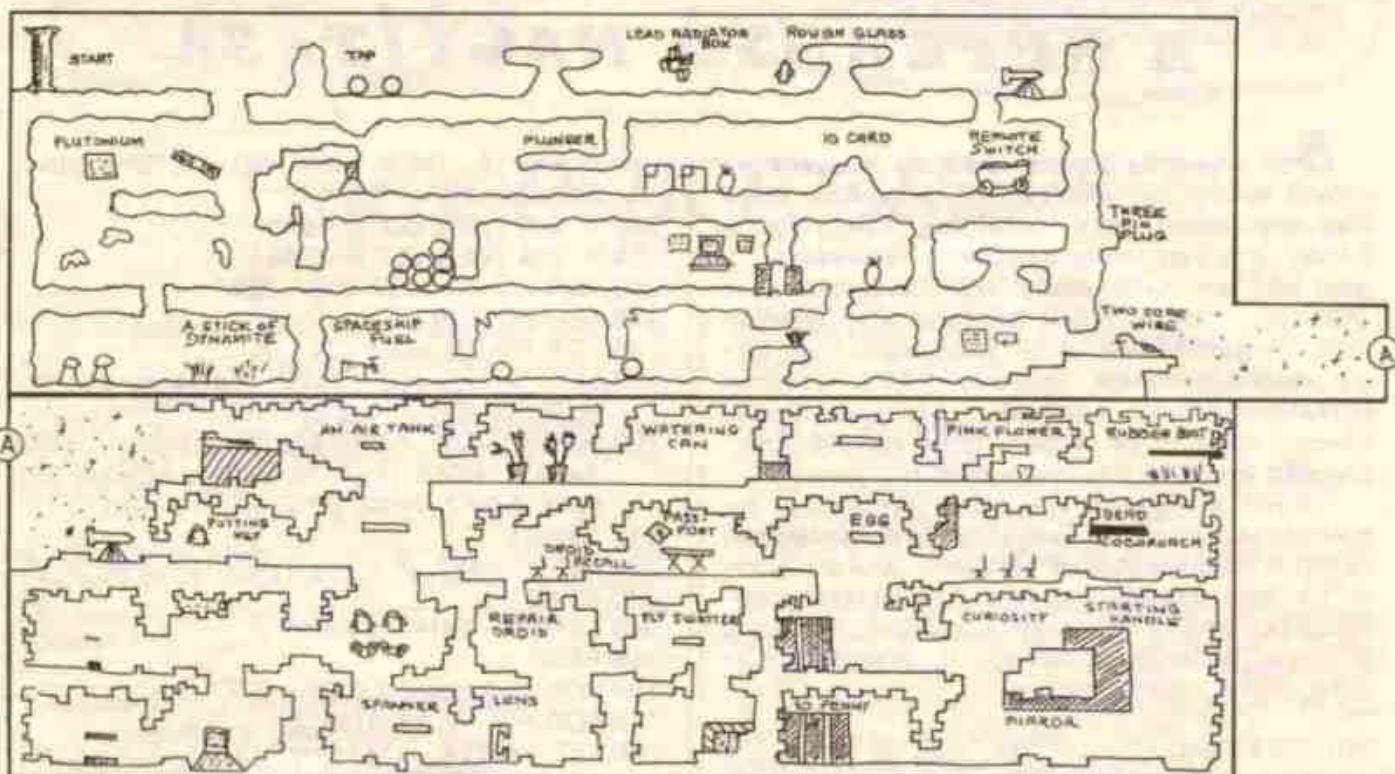 START
TAP
LEAD RADIATOR
BOX
ROUGH GLASS
PLUTONIUM
PLUNGER
ID CARD
REMOTE
SWITCH
THREE
PIN
PLUG
A STICK OF
DYNAMITE
SPACESHIP
FUEL
TWO CORE
WIRE
A
A
AN AIR TANK
WATERING
CAN
PINK FLOWER
RUBBER BAT
KEY
PASS-
PORT
DROID
RECALL
EGG
DEAD
COCKROACH
REPAIR
DROID
FLY SWATTER
CURIOSITY
STARTING
HANDLE
SPANNER
LENS
PENNY
MIRROR